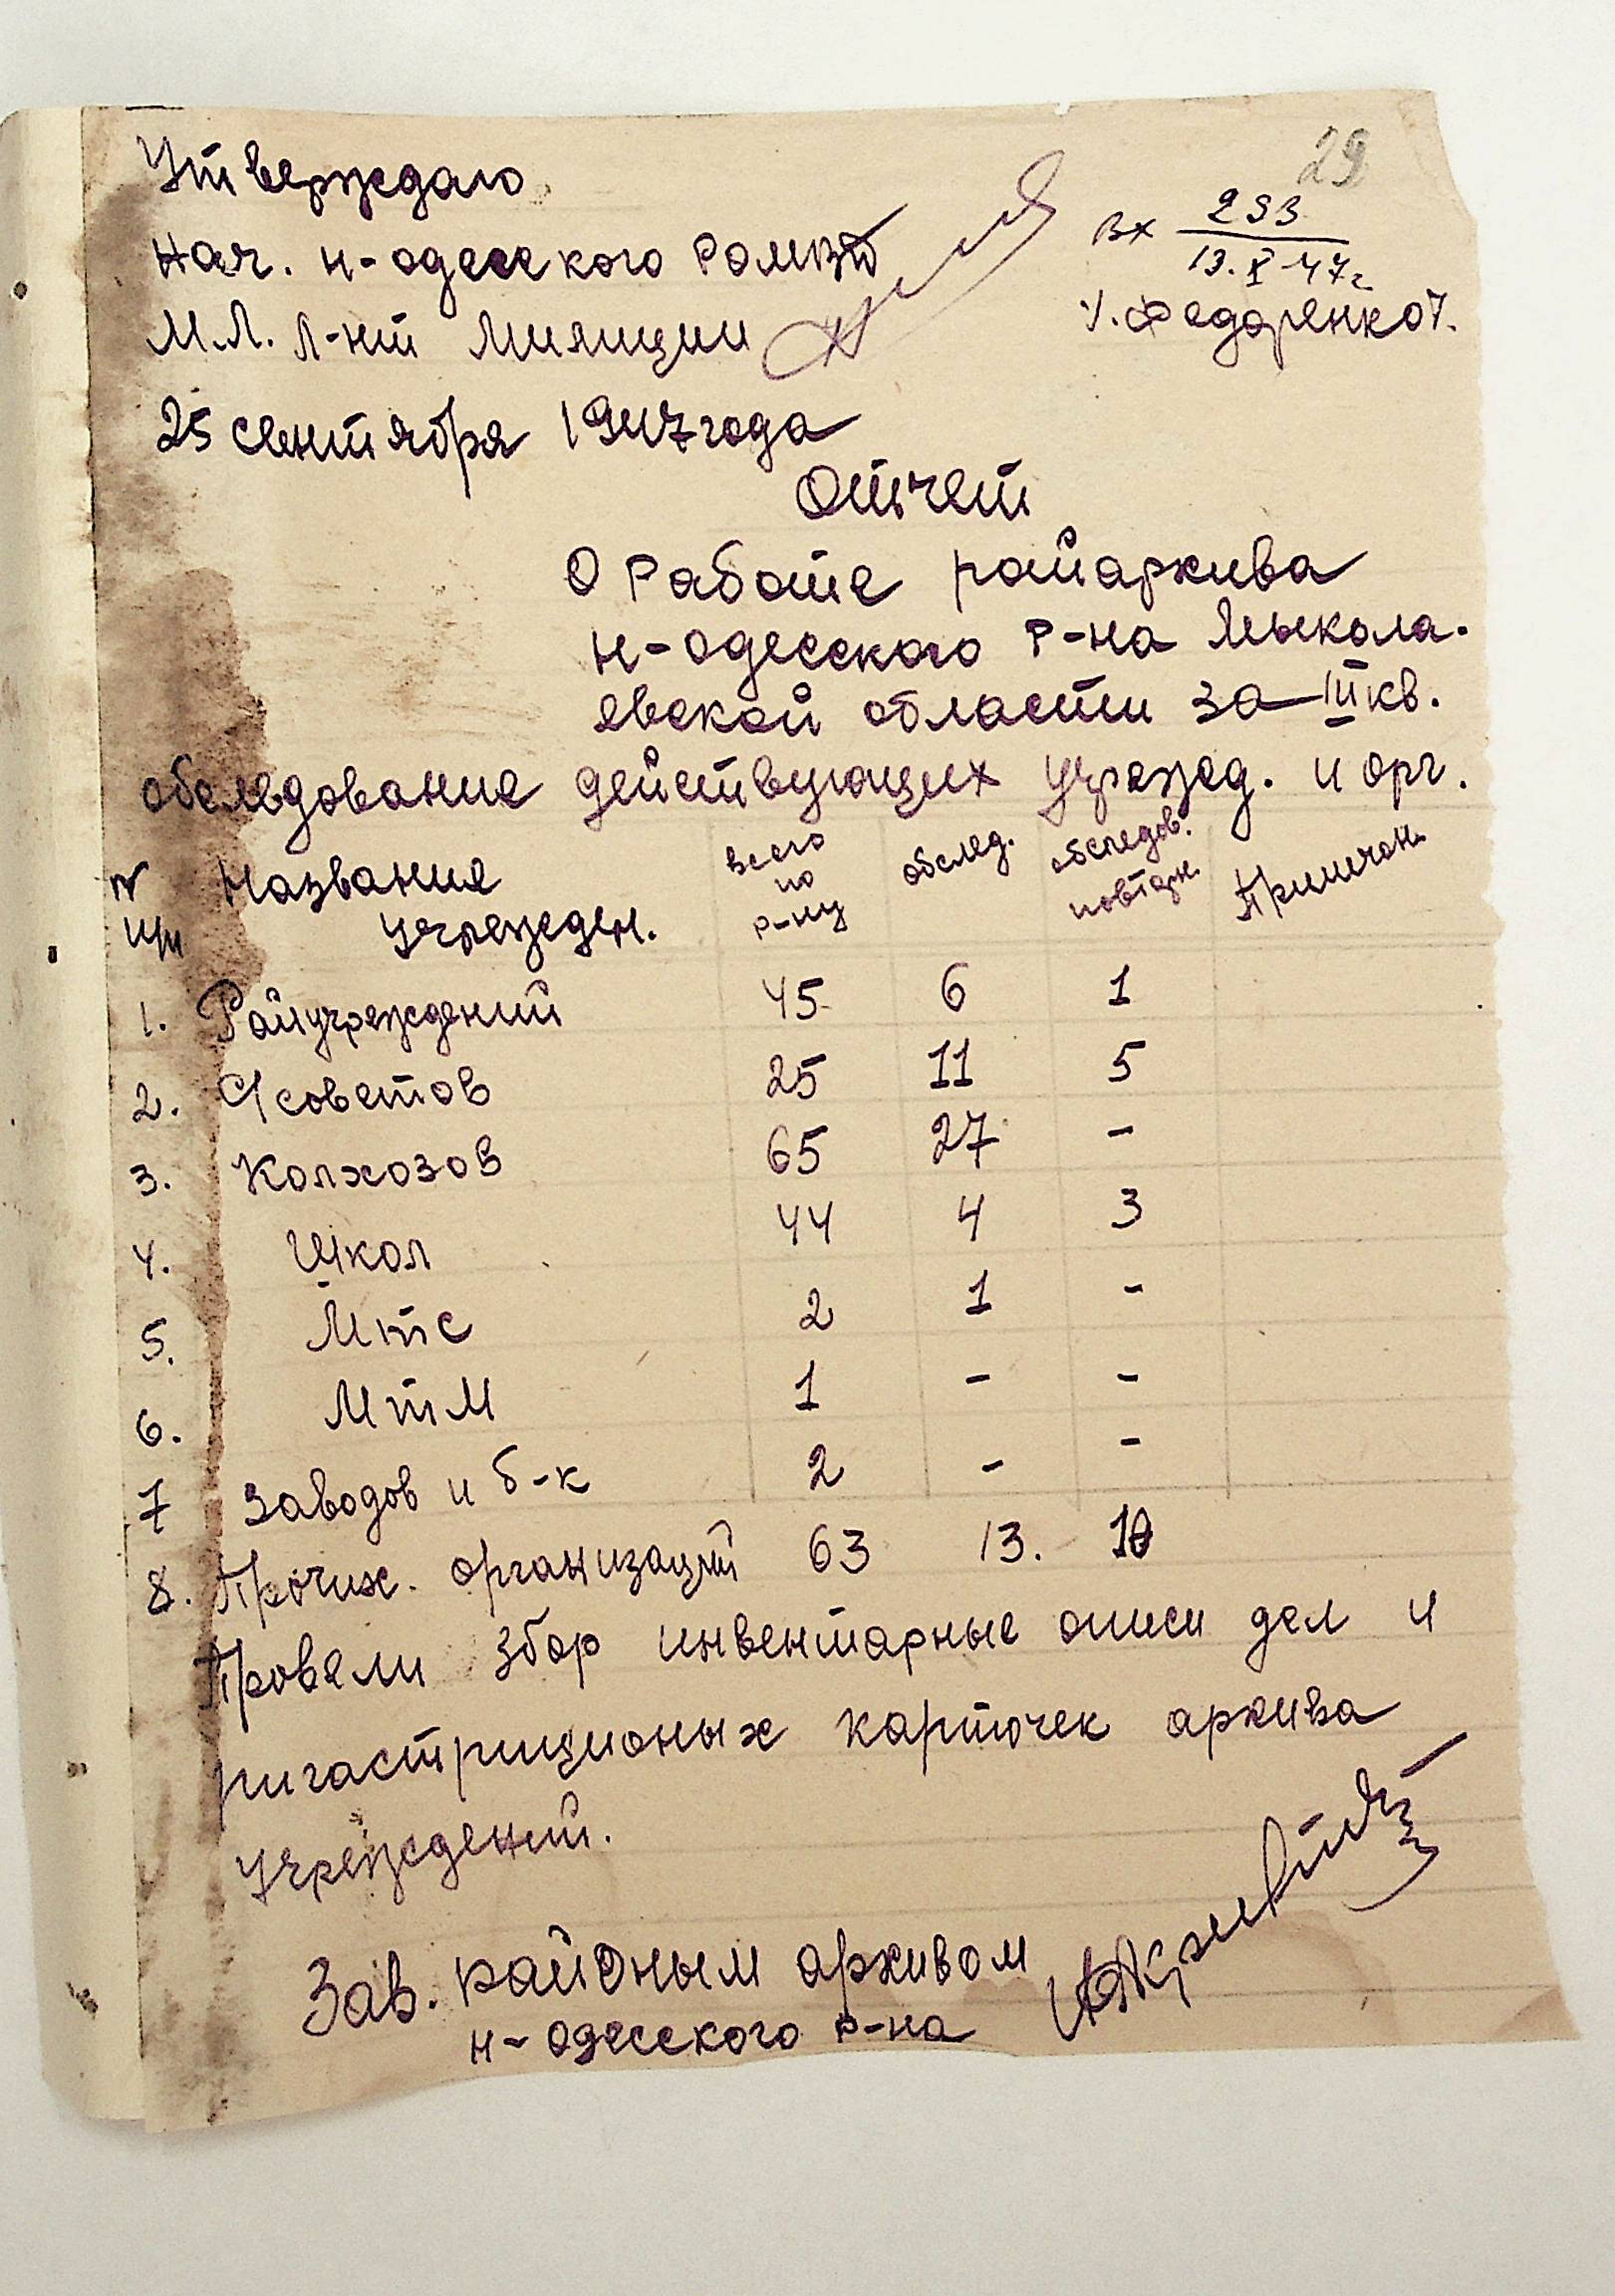 29
Утверждаю
Нач. Н-одесского РОМВД
М.Л. Л-нт Милиции
25 сентября 1947 года
Вх 293
13.X-47г
Отчет
О Работе райархива
Н-одесского Р-на Мыкола-
евской области за III кв.
обследование действующих учрежд. и орг.
№ п/п Название учрежден. всего по р-ну обслед. обследов. повторн. Примечан.
1. Райучреждений 45 6 1
2. С/советов 25 11 5
3. Колхозов 65 27 -
4. Школ 44 4 3
5. Мтс 2 1 -
6. МтМ 1 - -
7 Заводов и б-к 2 - -
8. Прочих. организаций 63 13. 10
Провели збор инвентарные описи дел и
ригастрционых карточек архива
учреждений.
Зав. районым архивом
Н-одесского р-на